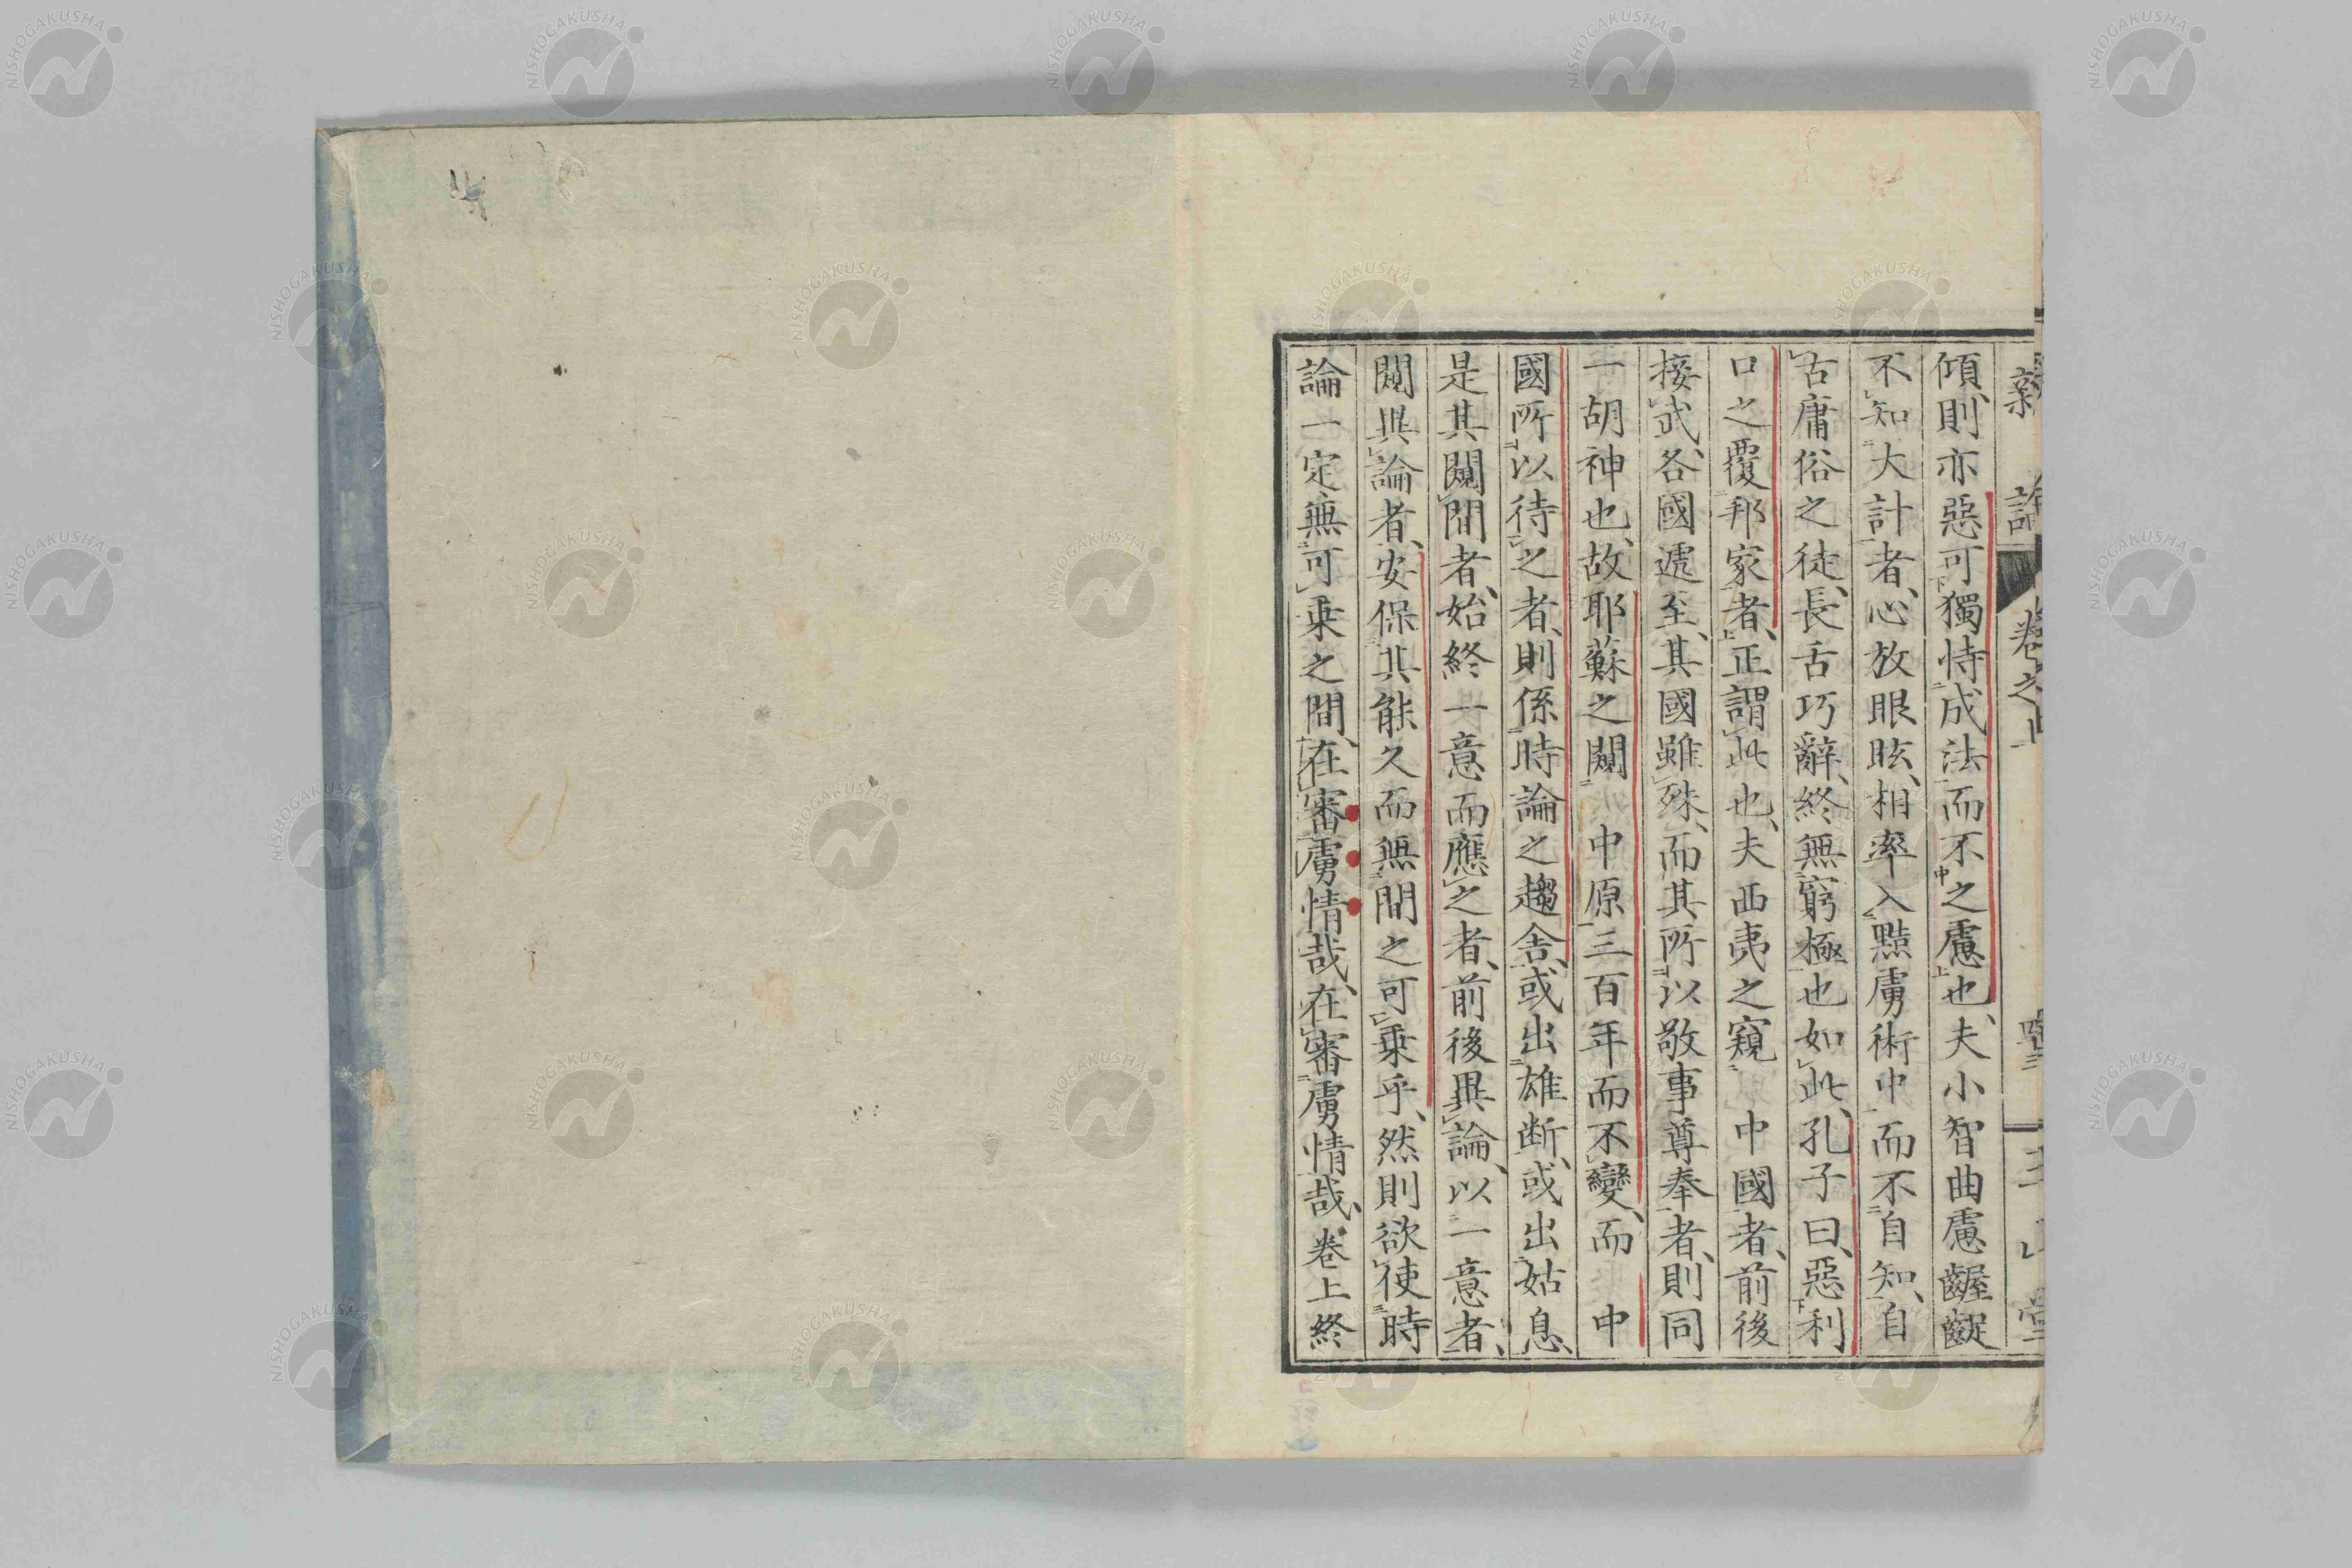 新論 卷之上
傾、則亦惡可獨恃成法而不之慮也、夫小智曲慮齷齪
不知大計者、心放眼眩、相率入黠虜術中而不自知、自
古庸俗之徒、長舌巧辭、終無窮極也如此、孔子曰、惡利
口之覆邦家者、正謂此也、夫西夷之窺 中國者、前後
接武、各國遞至、其國雖殊、而其所以敬事尊奉者、則同
一胡神也、故耶蘇之闚 中原三百年而不變、而 中
國所以待之者、則係時論之趨舍、或出雄斷、或出姑息、
是其闚間者、始終一意而應之者、前後異論、以一意者、
闚異論者、安保其能久而無間之可乘乎、然則欲使時
論一定無可乘之間、在審虜情哉、在審虜情哉、卷上終
NISHOGAKUSHA